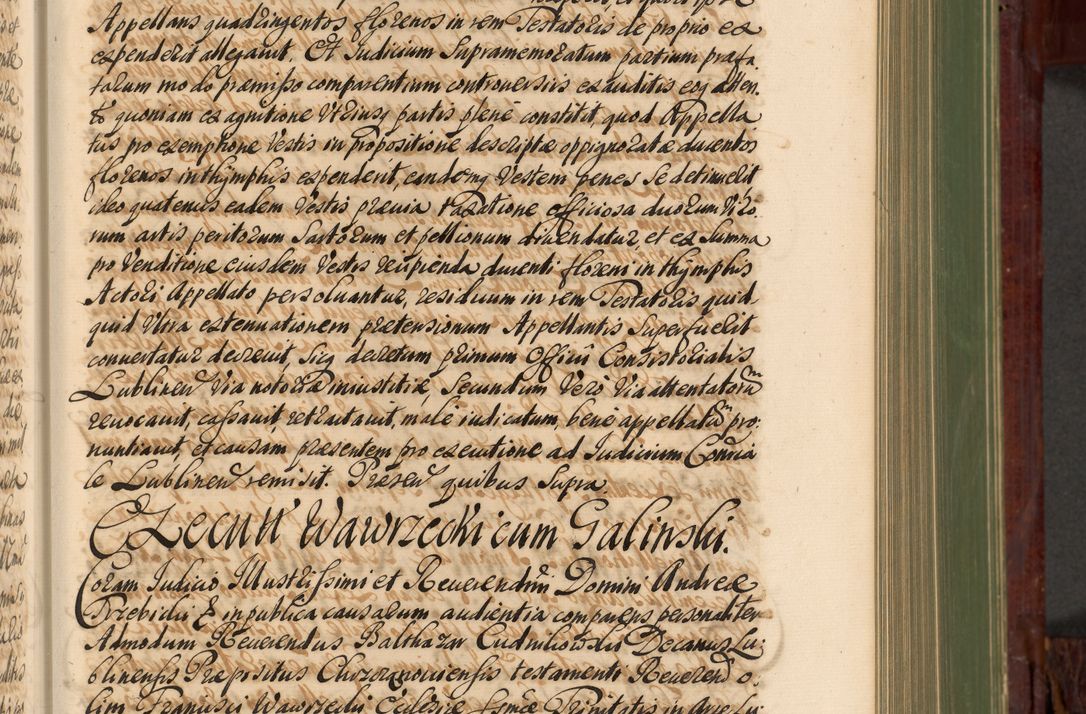 Appellans quadringentos florenos in rem Testatoris de proprio ex
expenderit allegavit. Et Judicium Supramemoratum partium præfa
tarum modo præmisso comparentium controversiis exauditis
& quoniam ex agnitione Utriusq partis plenè constitit, quod Appella
tus pro exemptione Vestis in propositione descriptæ oppignoratæ ducentos
florenos in thÿmphis expenderit, eandemq Vestem penes Se detinuerit
ideo quatenus eadem Vestis prævia taxatione officiosa duorum Viro
rum artis peritorum Sartorum et pellionum divendatur, et ex Summa
pro Venditione eiusdem Vestis recipienda ducenti floreni in thÿmphis
Actori Appellato persoluantur, residuum in rem Testatoris quid
quid Ultra extenuationem prætensionum Appellantis Superfuerit
convertatur decrevit, Sicq decretum primum Officii Consistorialis
Lublinen Via notoriæ iniustitiæ, Secundum Verò Via attentatorum
revocavit, cassavit, retractavit, malè iudicatum, benè appellatum pro
nuntiavit, et causam præsentem pro executione ad Judicium
le Lublinen remisit. Præsen quibus Supra.
Execut Wawrzecki cum Galinski.
Coram Judicio Illustrissimi et Reverendmi Domini Andreæ
Przebidii & in publica causarum audientia comparens personaliter
Admodum Reverendus Balthazar Decanus Lu:
blinensis Præpositus testamenti Reverend o:
lim Francisci Wawrzecki Ecclesiæ Ssmæ Trinitatis in Arce Lu